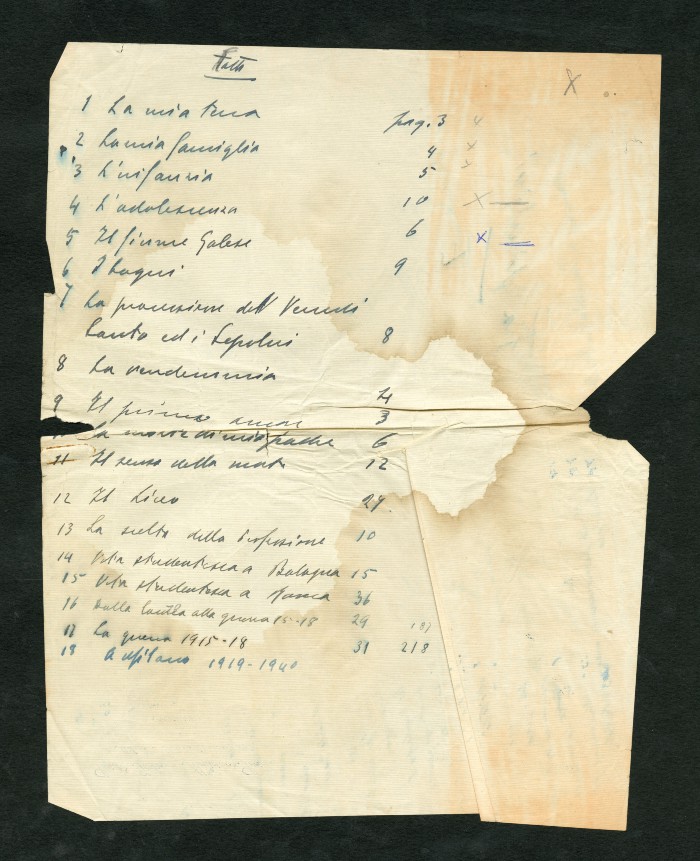 1 La mia terra pag. 3
2 La mia famiglia 4 x
3 L'infanzia 5 x
4 L'adolescenza 10 X —
5 Il fiume Galeso 6 x —
6 I bagni 9
7 La processione del Venerdi
Santo ed i Sepolcri 8
8 La vendemmia 4
9 Il primo amore 3
La morte di mio padre 6
11 Il senso della morte 12
12 Il Liceo 29
13 La scelta della professione 10
14 Vita studentesca a Bologna 15
15 Vita studentesca a Roma 36
16 Dalla laurea alla guerra 15-18 29 187
17 La guerra 1915-18 31 218
18 A Milano 1919-1940